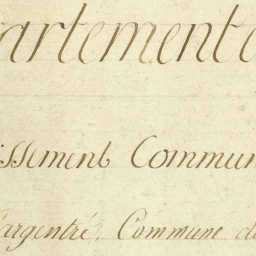 artement d
issement Commun
argentré, Commune d